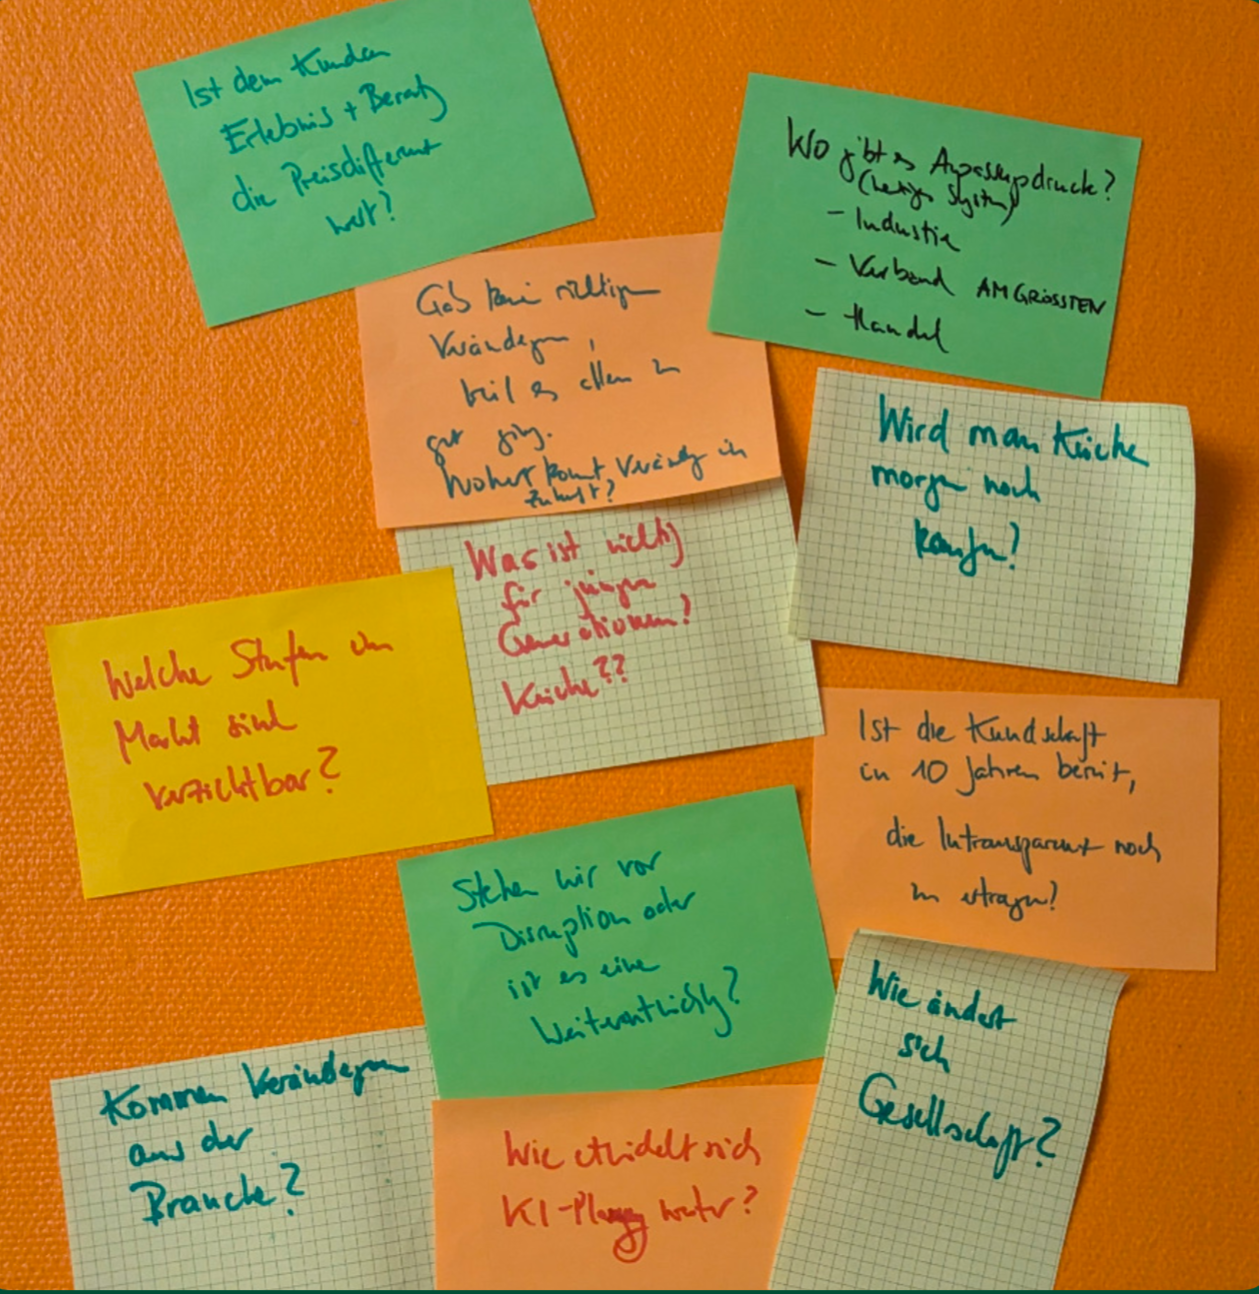 Ist dem Kunden
Erlebnis + Beratg
die Preisdifferenz
wert?
Wo gibt es Anpassungsdrucke?
(heutiges System)
- Industrie
- Verband AM GRÖSSTEN
- Handel
Gab keine richtigen
Veränderungen,
weil es allen zu
gut ging.
Woher kommt Veränderg in
Zukunft?
Wird man Küche
morgen noch
kaufen?
Was ist wichtig
für jüngere
Generationen?
Küche??
Welche Stufen im
Markt sind
verzichtbar?
Ist die Kundschaft
in 10 Jahren bereit,
die Intransparenz noch
zu ertragen?
Stehen wir vor
Disruption oder
ist es eine
Weiterentwicklg?
Wie ändert
sich
Gesellschaft?
Kommen Veränderungen
aus der
Branche?
Wie entwickelt sich
KI-Planung weiter?